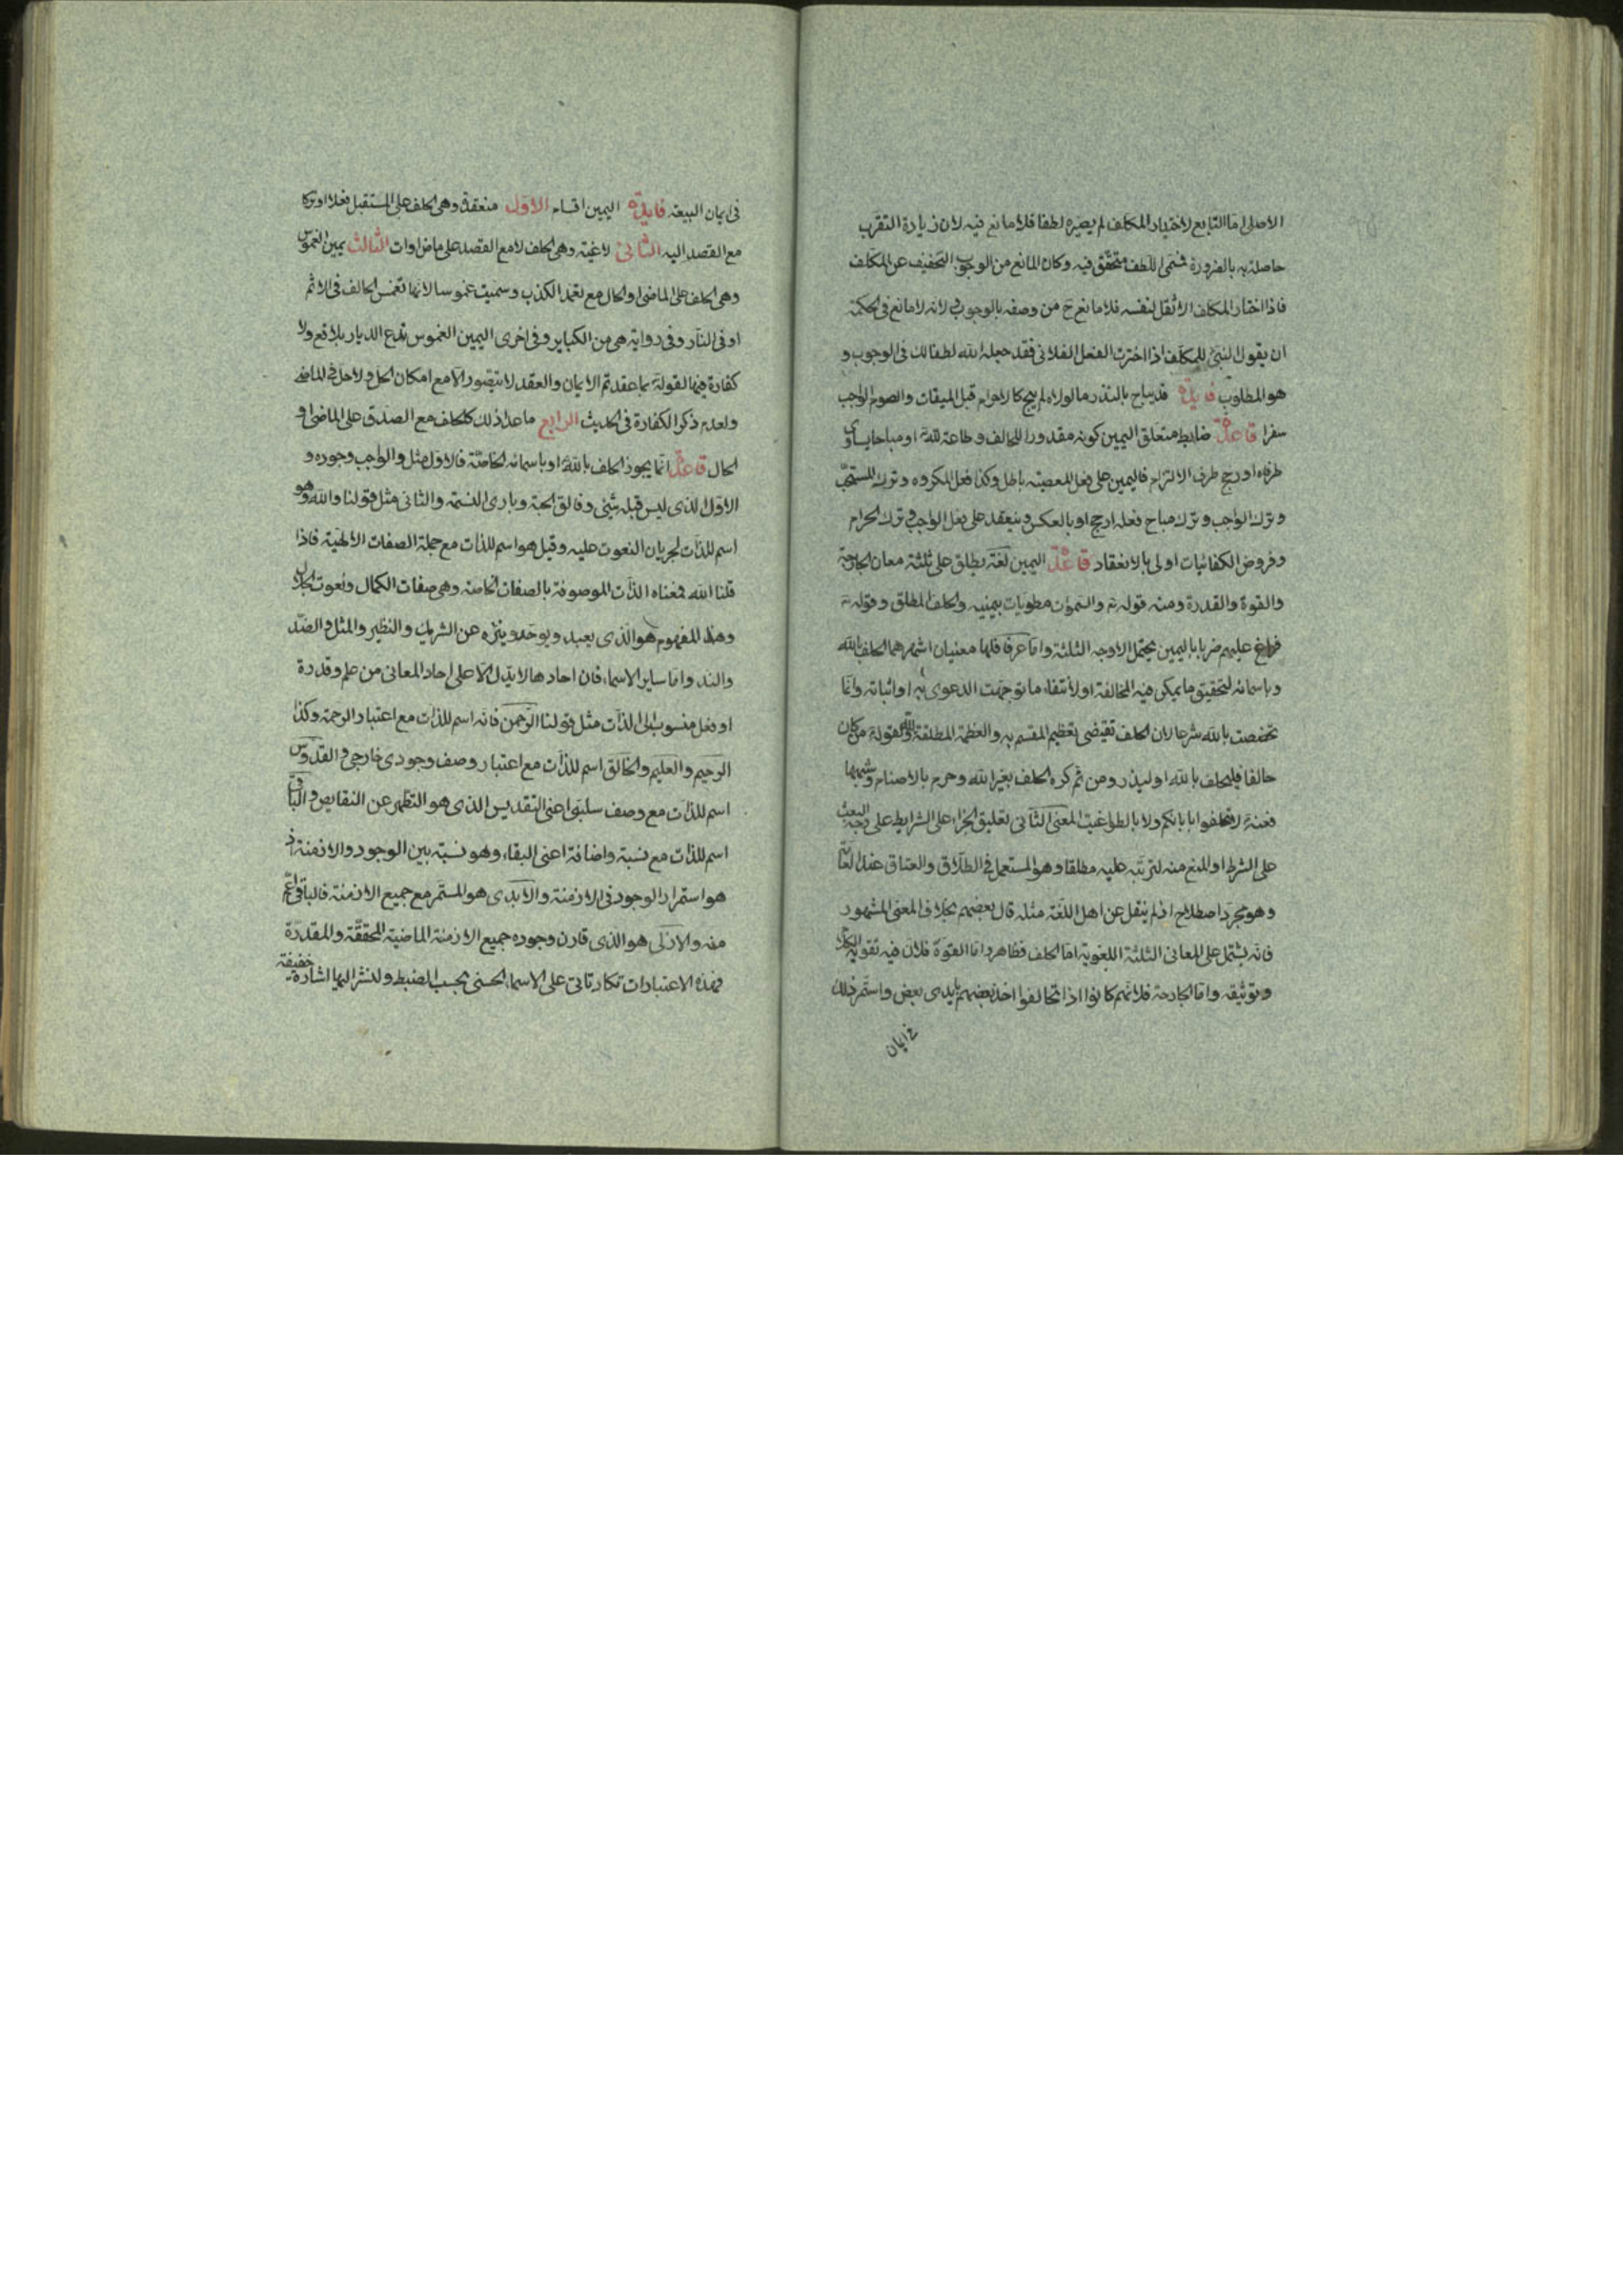 الاصلى اما التابع لاختيار المكلف لم يصيره لطفا فلا مانع فيه لان زيادة التقرب
حاصلة به بالضرورة فمعنى اللطف متحقق فيه وكان المانع من الوجوب التخفيف عن المكلف
فاذا اختار المكلف الاثقل لنفسه فلا مانع ح من وصفه بالوجوب ولانه لا مانع فى الحكمة
ان يقول النبى للمكلف اذا اخترت الفعل الفلانى فقد جعله الله لطفا لك فى الوجوب و
هو المطلوب فايدة قد يباح بالنذر ما لولاه لم يبح كالاحرام قبل الميقات والصوم الواجب
سفرا قاعدة ضابط متعلق اليمين كونه مقدورا للحالف وطاعة لله او مباحا يساوى
طرفاه او رجح طرف الالتزام فاليمين على فعل المعصية باطل وكذا فعل المكروه وترك المستحب
وترك الواجب وترك مباح فعله ارجح او بالعكس وينعقد على فعل الواجب وترك الحرام
وفروض الكفائيات اولى بالانعقاد قاعدة اليمين لغة يطلق على ثلثة معان الجارحة
والقوة والقدرة ومنه قوله تع والسموات مطويات بيمينه والحلف المطلق وقوله تع
فراغ عليهم ضربا باليمين يحتمل الاوجه الثلثة واما عرفا فلها معنيان اشهرهما الحلف بالله
وباسمائه لتحقيق ما يمكن فيه المخالفة او لانتفاء ما توجهت الدعوى به او اثباته وانما
تخصصت بالله شرعا لان الحلف تقتضى تعظيم المقسم به والعظمة المطلقة لله ولقوله من كان
حالفا فليحلف بالله او ليذر ومن ثم كره الحلف بغير الله وحرم بالاصنام وشبهها
فعنه لا تحلفوا بابائكم ولا بالطواغيت المعنى الثانى تعليق الجزاء على الشرايط على وجه البعث
على الشرط او المنع منه لترتبه عليه مطلقا وهو المستعمل فى الطلاق والعتاق عند العامة
وهو مجرد اصطلاح اذ لم ينقل عن اهل اللغة مثله قال بعضهم بخلاف المعنى المشهور
فانه يشتمل على المعانى الثلثة اللغوية اما الحلف فظاهر واما القوة فلان فيه تقوية الكلام
وتوثيقه واما الجارحة فلانهم كانوا اذا تحالفوا اخذ بعضهم بايدى بعض واستمر ذلك
فى ايمان
فى ايمان البيعة فايدة اليمين اقسام الاول منعقدة وهى الحلف على المستقبل فعلا او تركا
مع القصد اليه الثانى لاغية وهى الحلف لا مع القصد على ماض او ات الثالث يمين الغموس
وهى الحلف على الماضى او الحال مع تعمد الكذب وسميت غموسا لانها تغمس الحالف فى الاثم
او فى النار وفى رواية هى من الكباير وفى اخرى اليمين الغموس تدع الديار بلاقع ولا
كفارة فيها لقوله بما عقدتم الايمان والعقد لا يتصور الا مع امكان الحل ولا حل فى الماضى
ولعدم ذكر الكفارة فى الحديث الرابع ما عدا ذلك كالحلف مع الصدق على الماضى او
الحال قاعدة انما يجوز الحلف بالله او باسمائه الخاصة فالاول مثل والواجب وجوده و
الاول الذى ليس قبله شئ وفالق الحبة وبارئ النسمة والثانى مثل قولنا والله وهو
اسم للذات لجريان النعوت عليه وقيل هو اسم للذات مع جملة الصفات الالهية فاذا
قلنا الله فمعناه الذات الموصوفة بالصفات الخاصة وهى صفات الكمال ونعوت الجلال
وهذا المفهوم هو الذى يعبد ويوحد وينزه عن الشريك والنظير والمثل والضد
والند واما ساير الاسماء فان احادها لا يدل الا على احاد المعانى من علم وقدرة
او فعل منسوب الى الذات مثل قولنا الرحمن فانه اسم للذات مع اعتبار الرحمة وكذا
الرحيم والعليم والخالق اسم للذات مع اعتبار وصف وجودى خارجى والقدوس
اسم للذات مع وصف سلبى اعنى التقديس الذى هو التطهر عن النقايص والباقى
اسم للذات مع نسبة واضافة اعنى البقاء وهو نسبة بين الوجود والازمنة اذ
هو استمرار الوجود فى الازمنة والابدى هو المستمر مع جميع الازمنة فالباقى اعم
منه والازلى هو الذى قارن وجوده جميع الازمنة الماضية المحققة والمقدرة
فهذه الاعتبارات تكاد تاتى على الاسماء الحسنى بحسب الضبط ولنشر اليها اشارة خفيفة